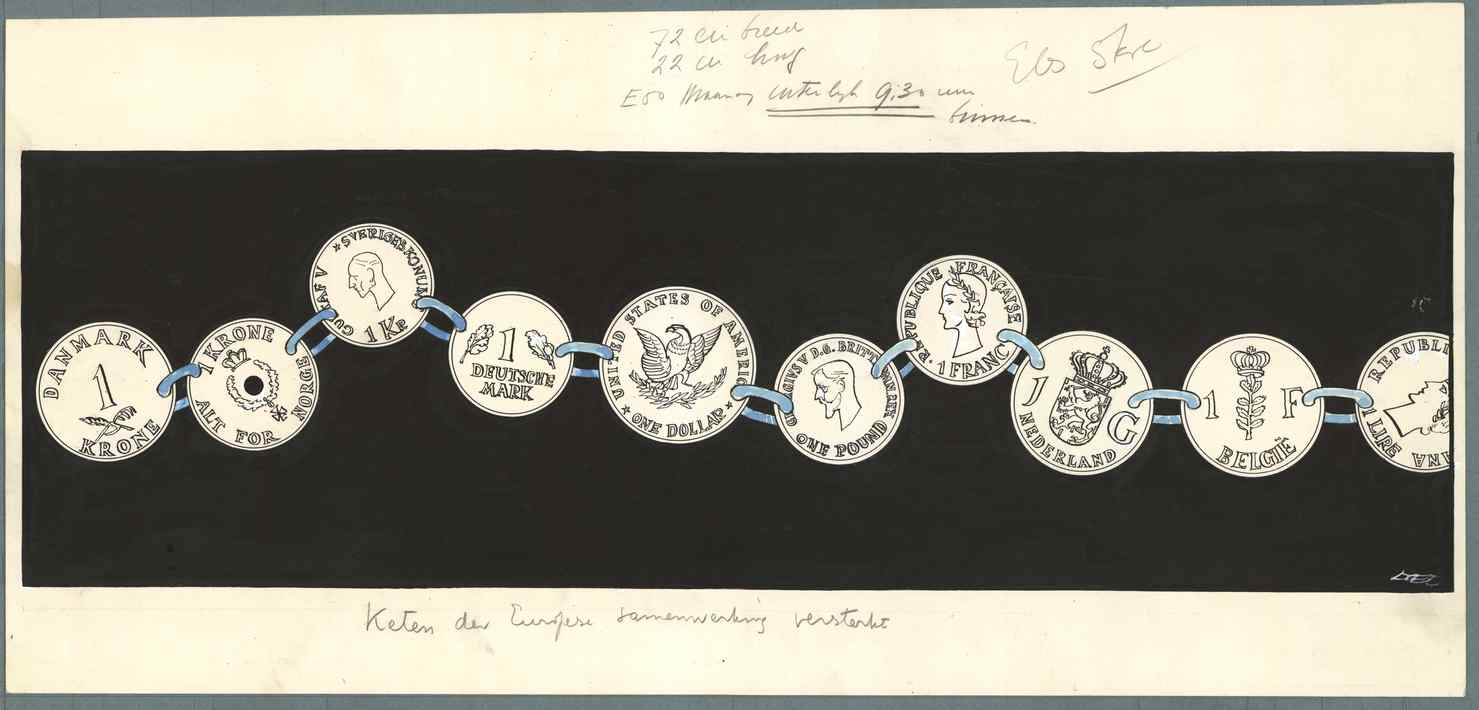 72 cm breed
22 cm hoog
uiterlijk 9.30 uur
binnen
DANMARK
1
KRONE
1 KRONE
NORGE
ALT FOR
GUSTAF V
★ SVERIGES KONUNG
1 KR
1
DEUTSCHE
MARK
UNITED STATES OF AMERICA
★ ONE DOLLAR ★
V D.G. BRITT
ONE POUND
REPUBLIQUE FRANÇAISE
1 FRANC
1 G
NEDERLAND
1 F
BELGIË
REPUBLI
1 LIRE
ANA
Keten der Europese samenwerking versterkt